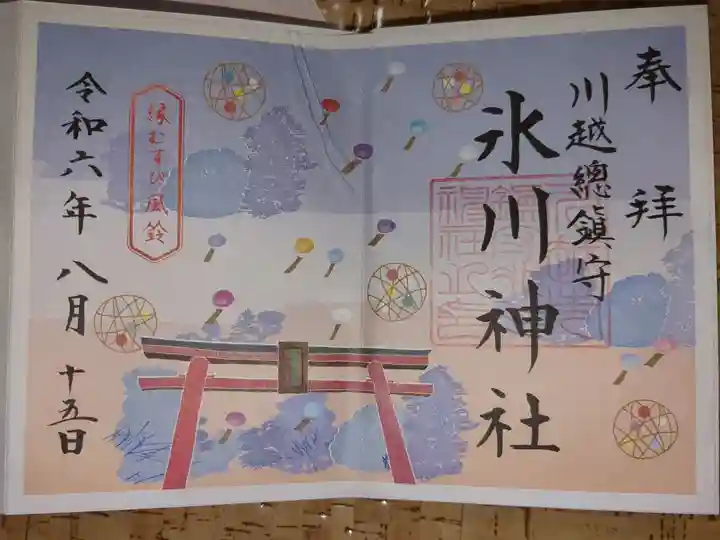 奉拝
川越總鎮守
氷川神社
縁むすび風鈴
令和六年八月十五日